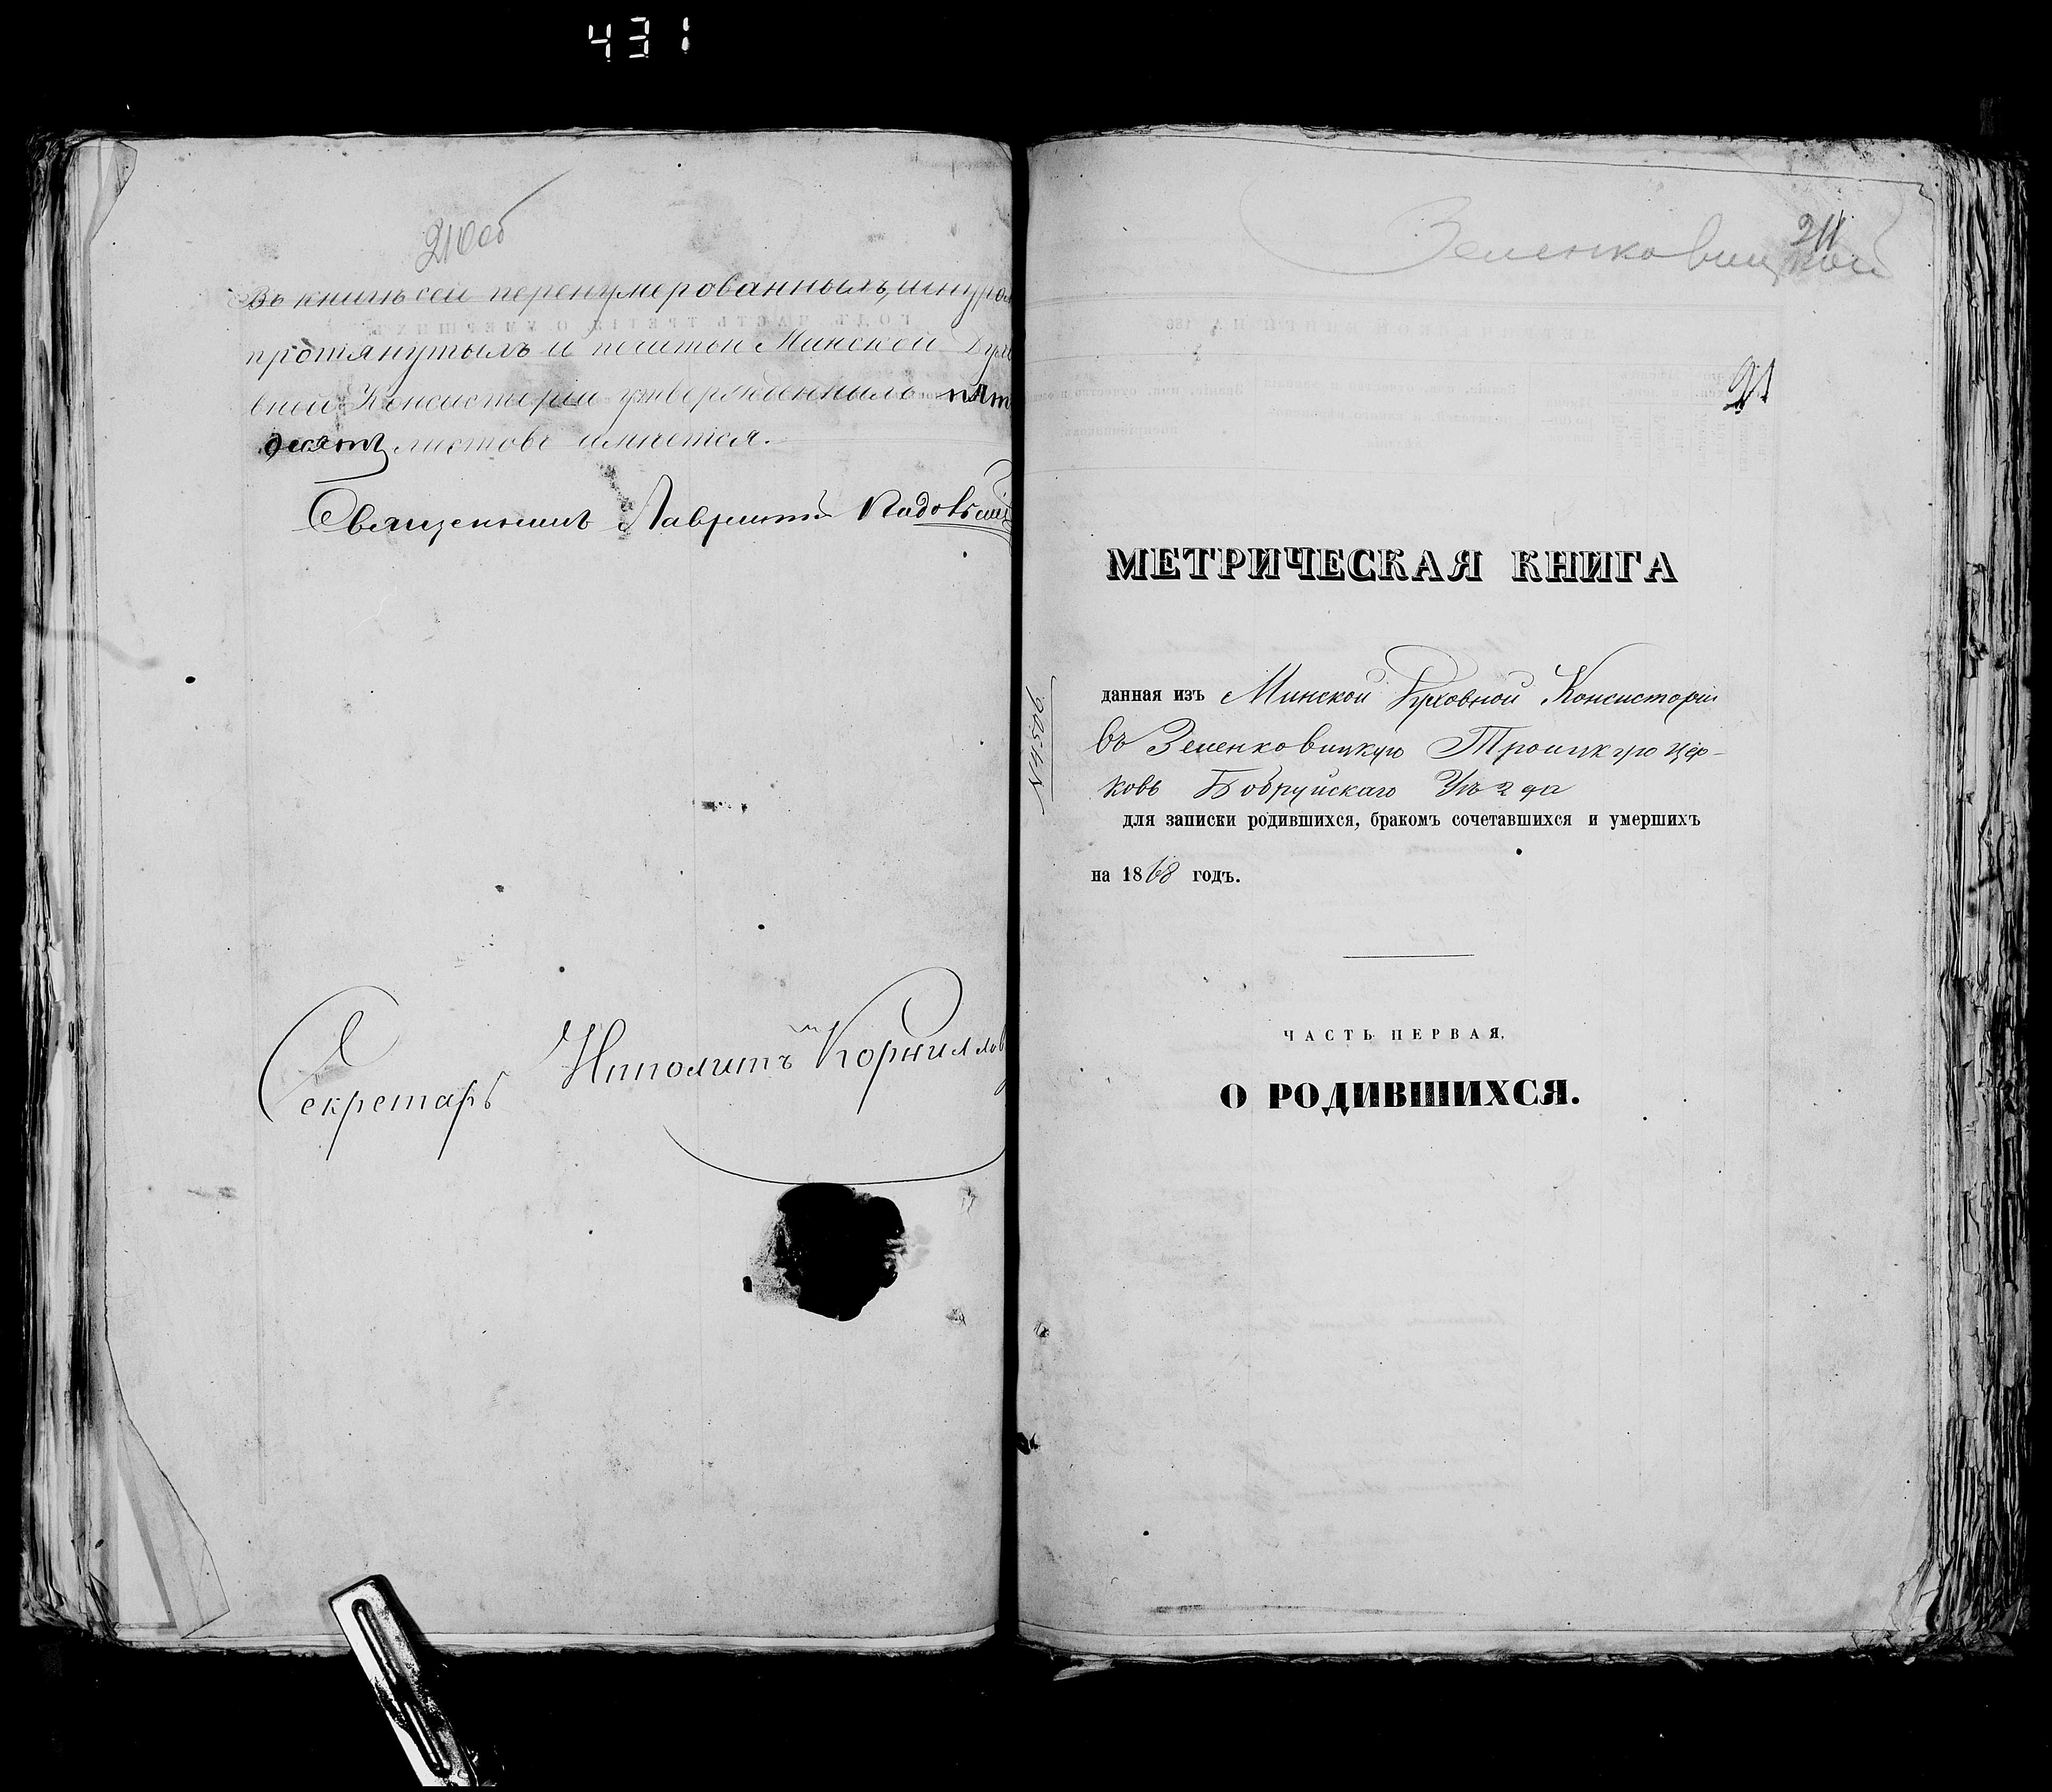 431
210об
Въ книгѣ сей перенумерованныхъ, шнуром
протянутыхъ и печатью Минской Духо
вной Консисторіи утвержденныхъ пять
десятъ листовъ имѣется.
Священникъ Лаврентій
Секретарь Ипполитъ Корнилов
Зеленковицкой
211
21
МЕТРИЧЕСКАЯ КНИГА
данная изъ Минской Духовной Консисторіи
въ Зеленковицкую Троицкую Цер-
ковь Бобруйскаго Уѣзда
для записки родившихся, бракомъ сочетавшихся и умершихъ
на 1868 годъ.
№ 4506
ЧАСТЬ ПЕРВАЯ,
О РОДИВШИХСЯ.